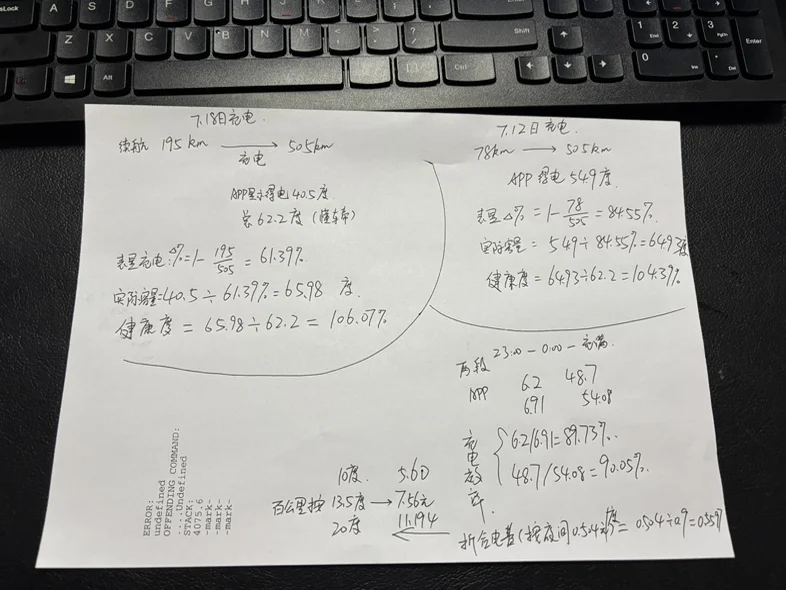 7.18日充电
续航 195km → 505km
充电
APP显示得电40.5度
总62.2度（懂车帝）
表显充电:Δ%=1-195/505=61.39%
实际容量=40.5÷61.39%=65.98 度
健康度=65.98÷62.2=106.07%
7.12日充电
78km → 505km
APP得电54.9度
表显Δ%=1-78/505=84.55%
实际容量=54.9÷84.55%=64.93度
健康度=64.93÷62.2=104.39%
两段 23:00-0:00-充满
APP 6.2 48.7
6.91 54.08
充电效率
6.2/6.91=89.73%
48.7/54.08=90.05%
10度 5.6
百公里按 13.5度→7.56元
20度 11.194
折合电费(按夜间0.504元/度)=0.504÷0.9=0.5597
ERROR:
undefined
OFFENDING COMMAND:
...Undefined
STACK:
4075.6
-mark-
-mark-
-mark-
CapsLock
A S D F G H J K L
Enter
Z X C V B N M < > ?
Shift
Alt
Ctrl
1 End
2
3 PgDn
0 Ins
. Del
Enter